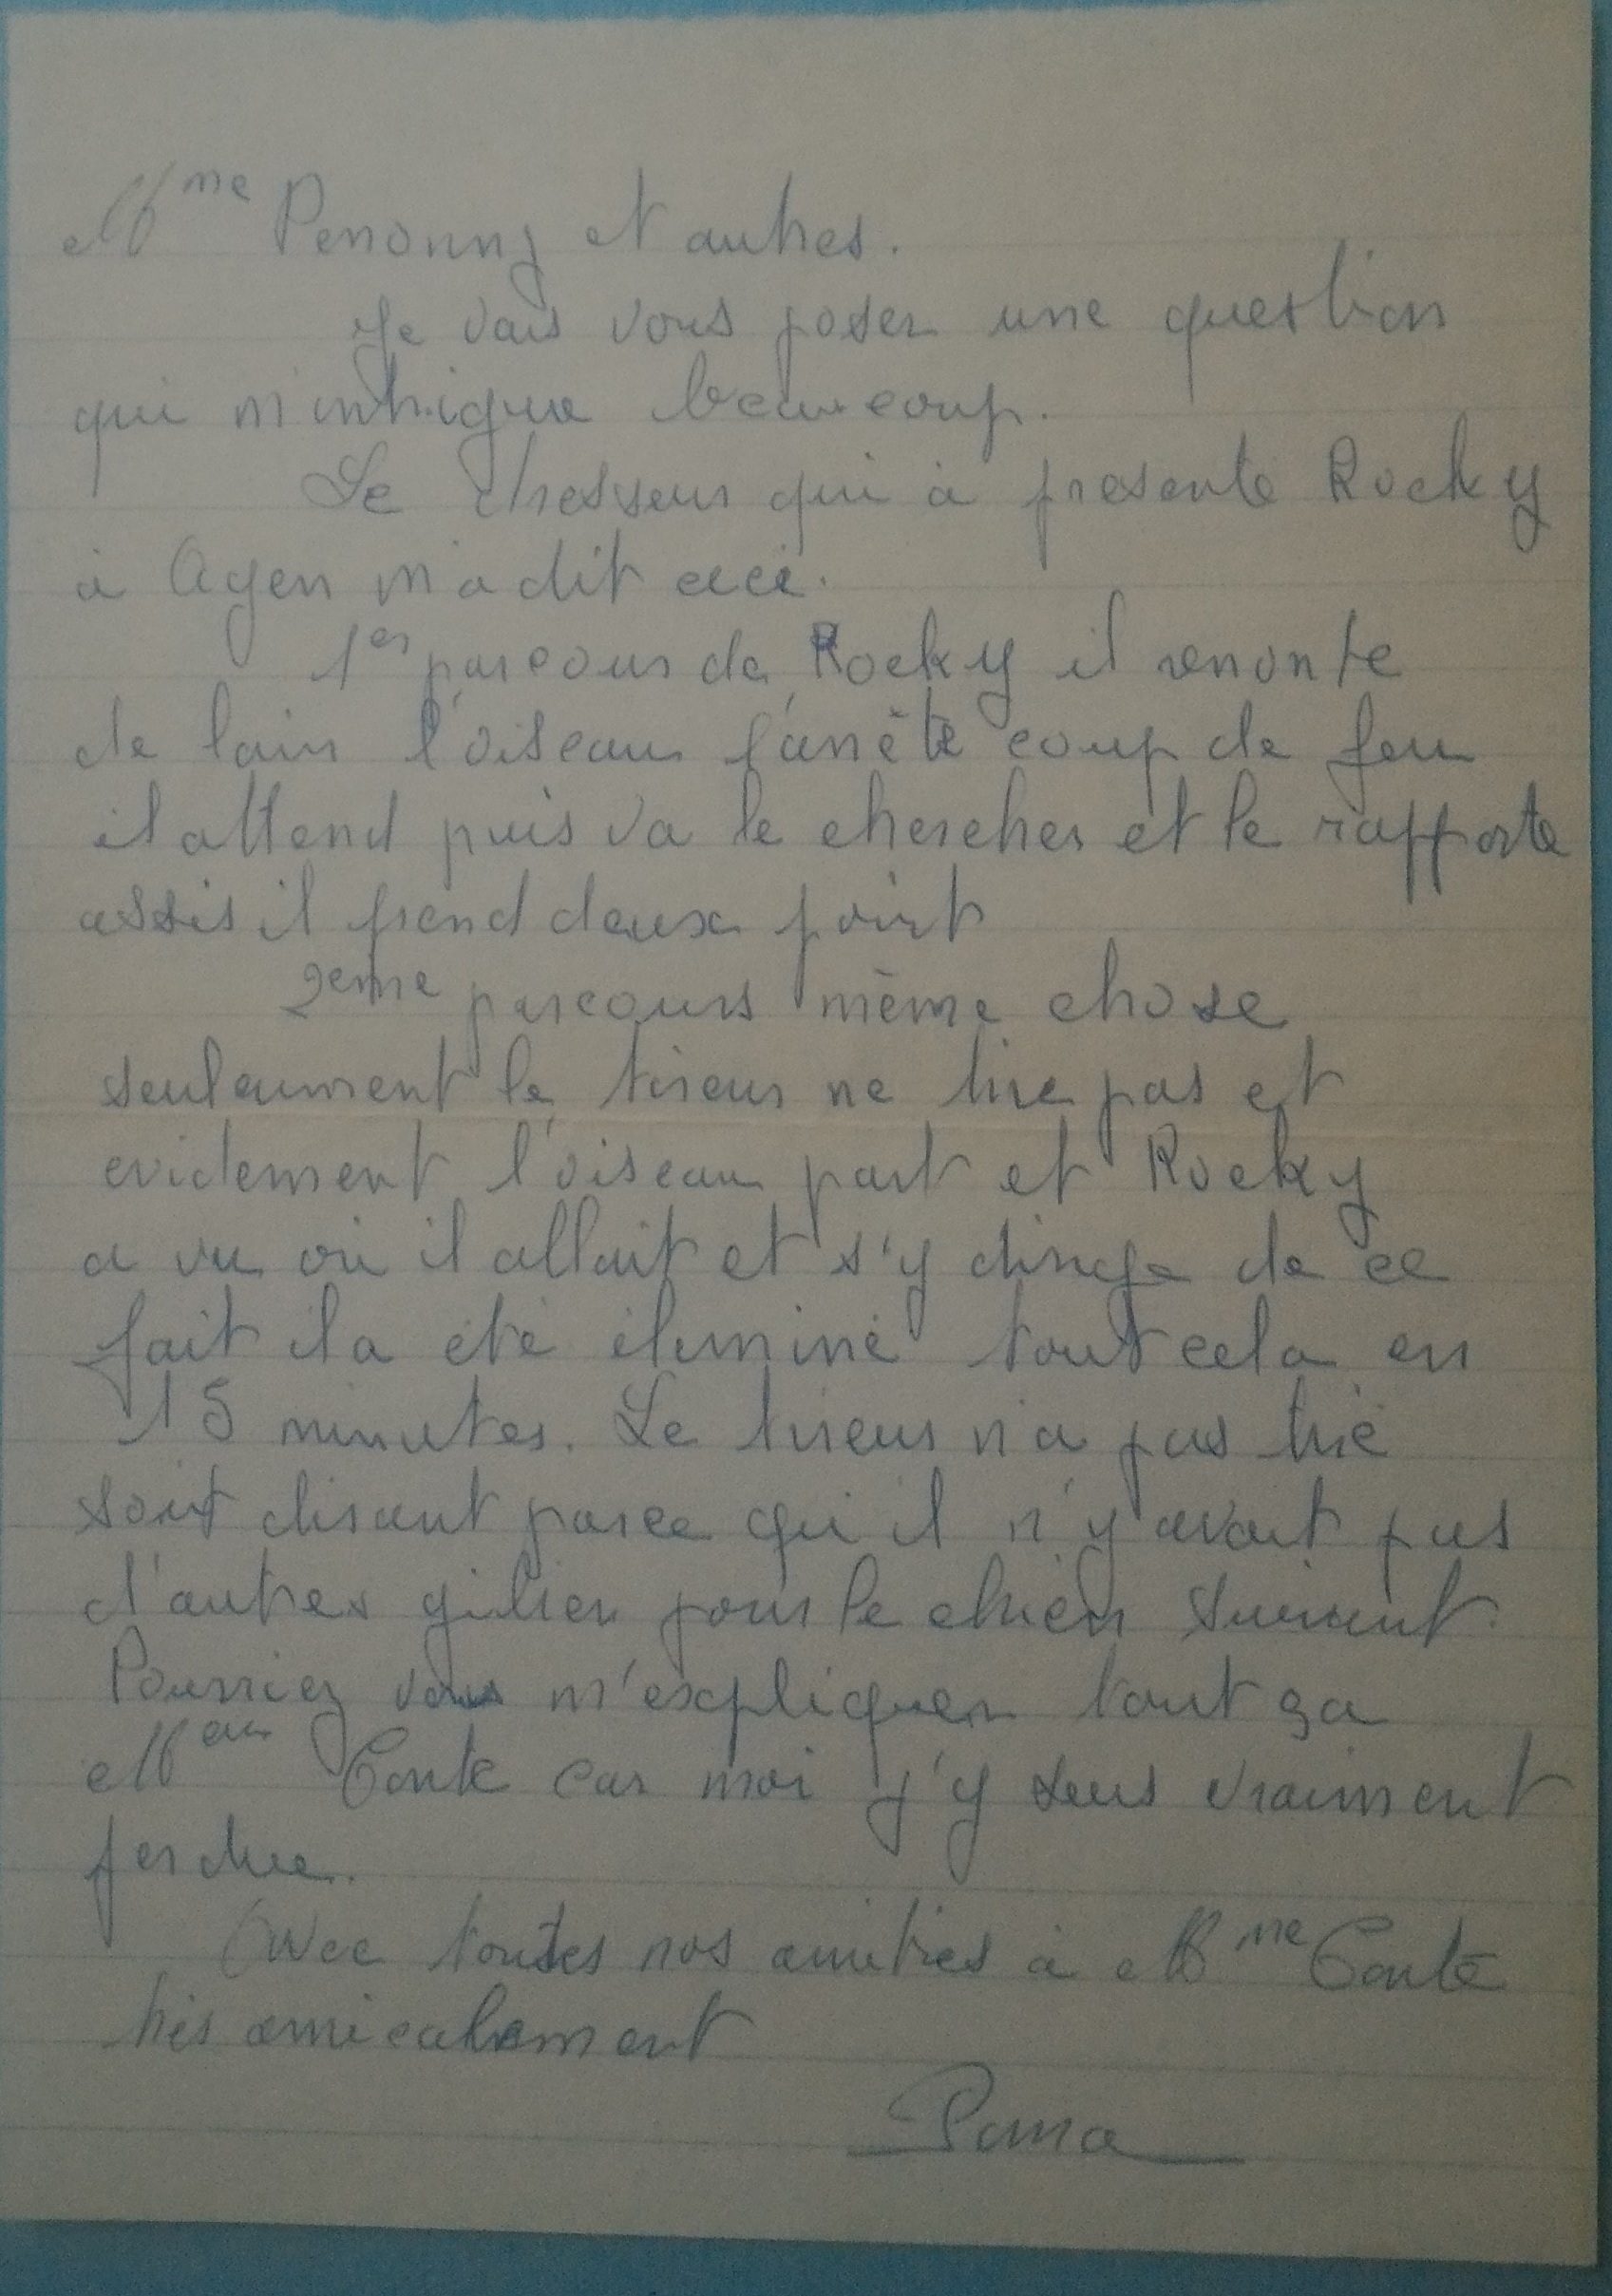 Mme Penonny et autres.
Je vais vous poser une question
qui m'intrigue beaucoup.
Le dresseur qui à presenté Rocky
à Agen m'a dit ceci.
1er parcour de Rocky il remonte
de loin l'oiseau l'arrête coup de feu
il attend puis va le chercher et le rapporte
assis il prend deux point
2eme parcours même chose
seulement le tireur ne tire pas et
evidement l'oiseau part et Rocky
a vu où il allait et s'y dirige de ce
fait il a été éliminé tout cela en
15 minutes. Le tireur n'a pas tiré
soit disant parce qu'il n'y avait pas
d'autres gibier pour le chien suivant.
Pourriez vous m'expliquer tout ça
Conte car moi j'y suis vraiment
perdue.
Avec toutes nos amitiés à Mme Conte
très amicalement